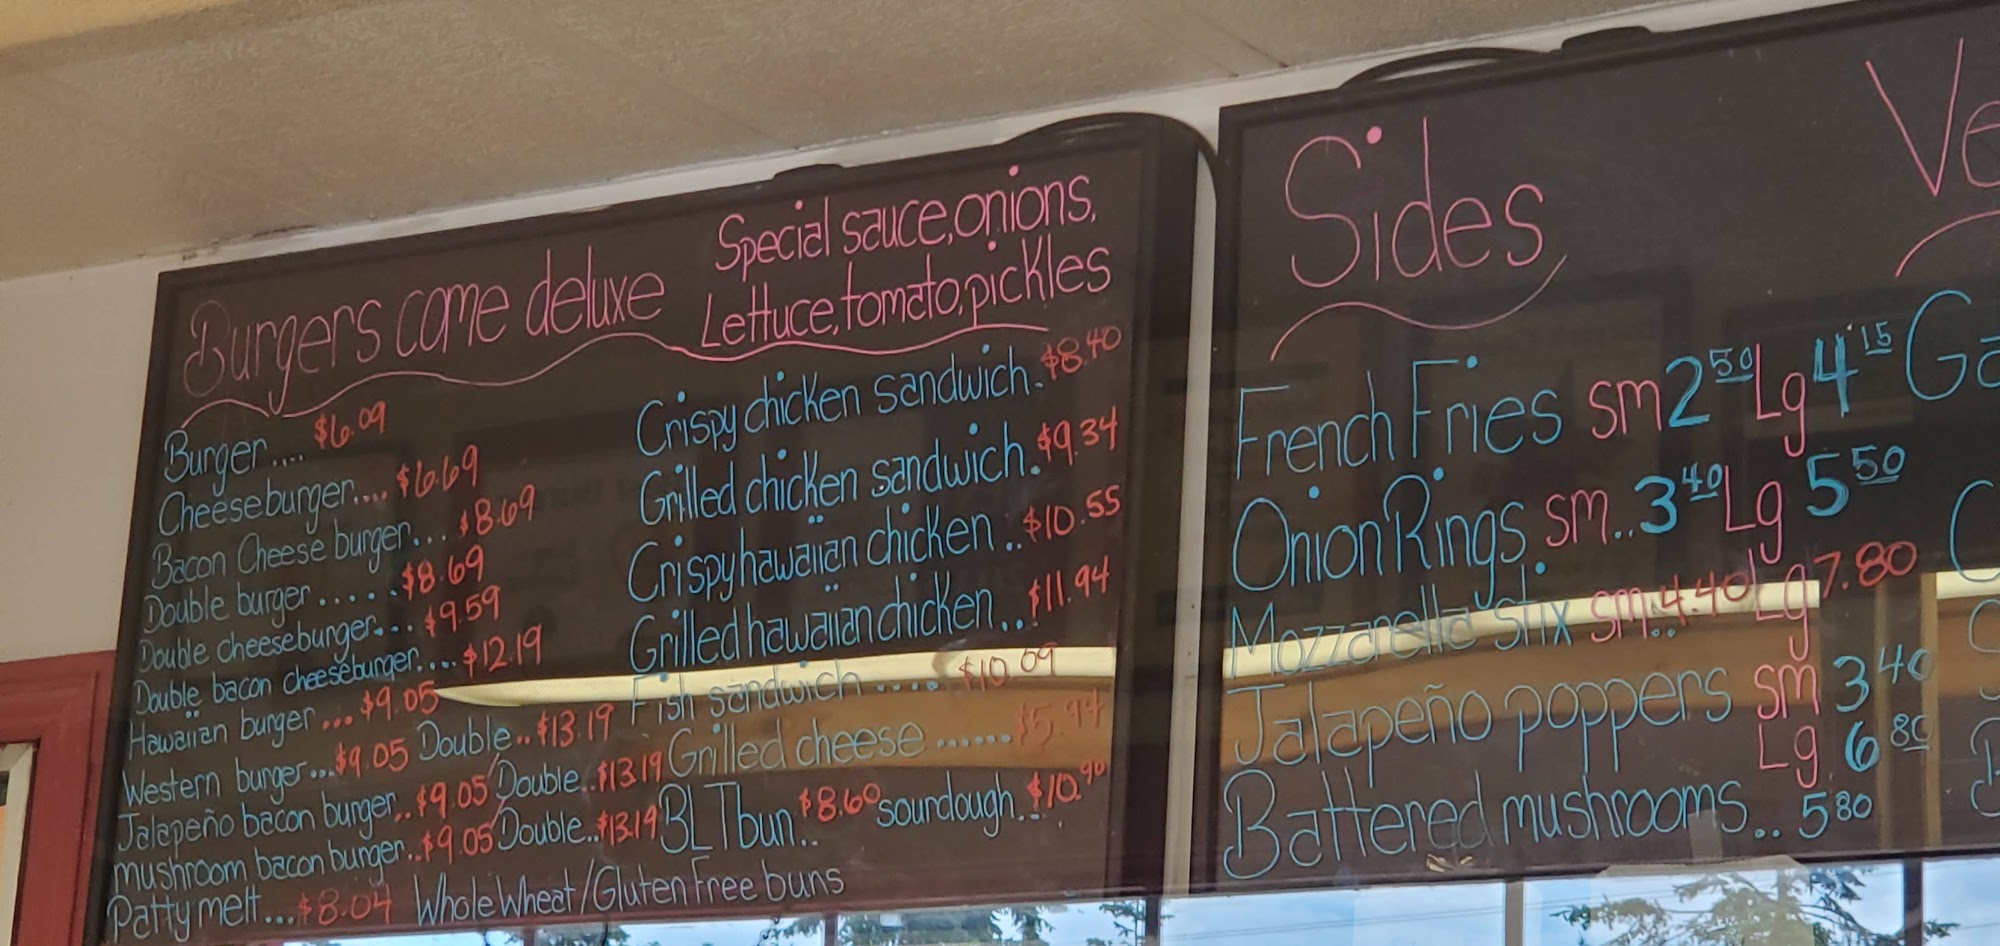 Burgers come deluxe
Special sauce, onions,
Lettuce, tomato, pickles
Burger.... $6.09
Cheeseburger.... $6.69
Bacon Cheese burger... $8.69
Double burger...... $8.69
Double cheeseburger.... $9.59
Double bacon cheeseburger.... $12.19
Hawaiian burger... $9.05 Double.. $13.19
Western burger... $9.05 Double.. $13.19
Jalapeño bacon burger.. $9.05 Double.. $13.19
mushroom bacon burger.. $9.05
Patty melt... $8.04 Whole Wheat/Gluten Free buns
Crispy chicken sandwich. $8.40
Grilled chicken sandwich. $9.34
Crispy hawaiian chicken.. $10.55
Grilled hawaiian chicken... $11.94
Fish sandwich .... $10.09
Grilled cheese ......
BLT bun.. $8.60 sourdough... $10.90
Sides
French Fries sm 2 50 Lg 4 15
Onion Rings sm.. 3 40 Lg 5 50
Mozzarella stix sm.. 4.40 Lg 7.80
Jalapeño poppers sm 3 40
Lg. 6 80
Battered mushrooms.. 5 80